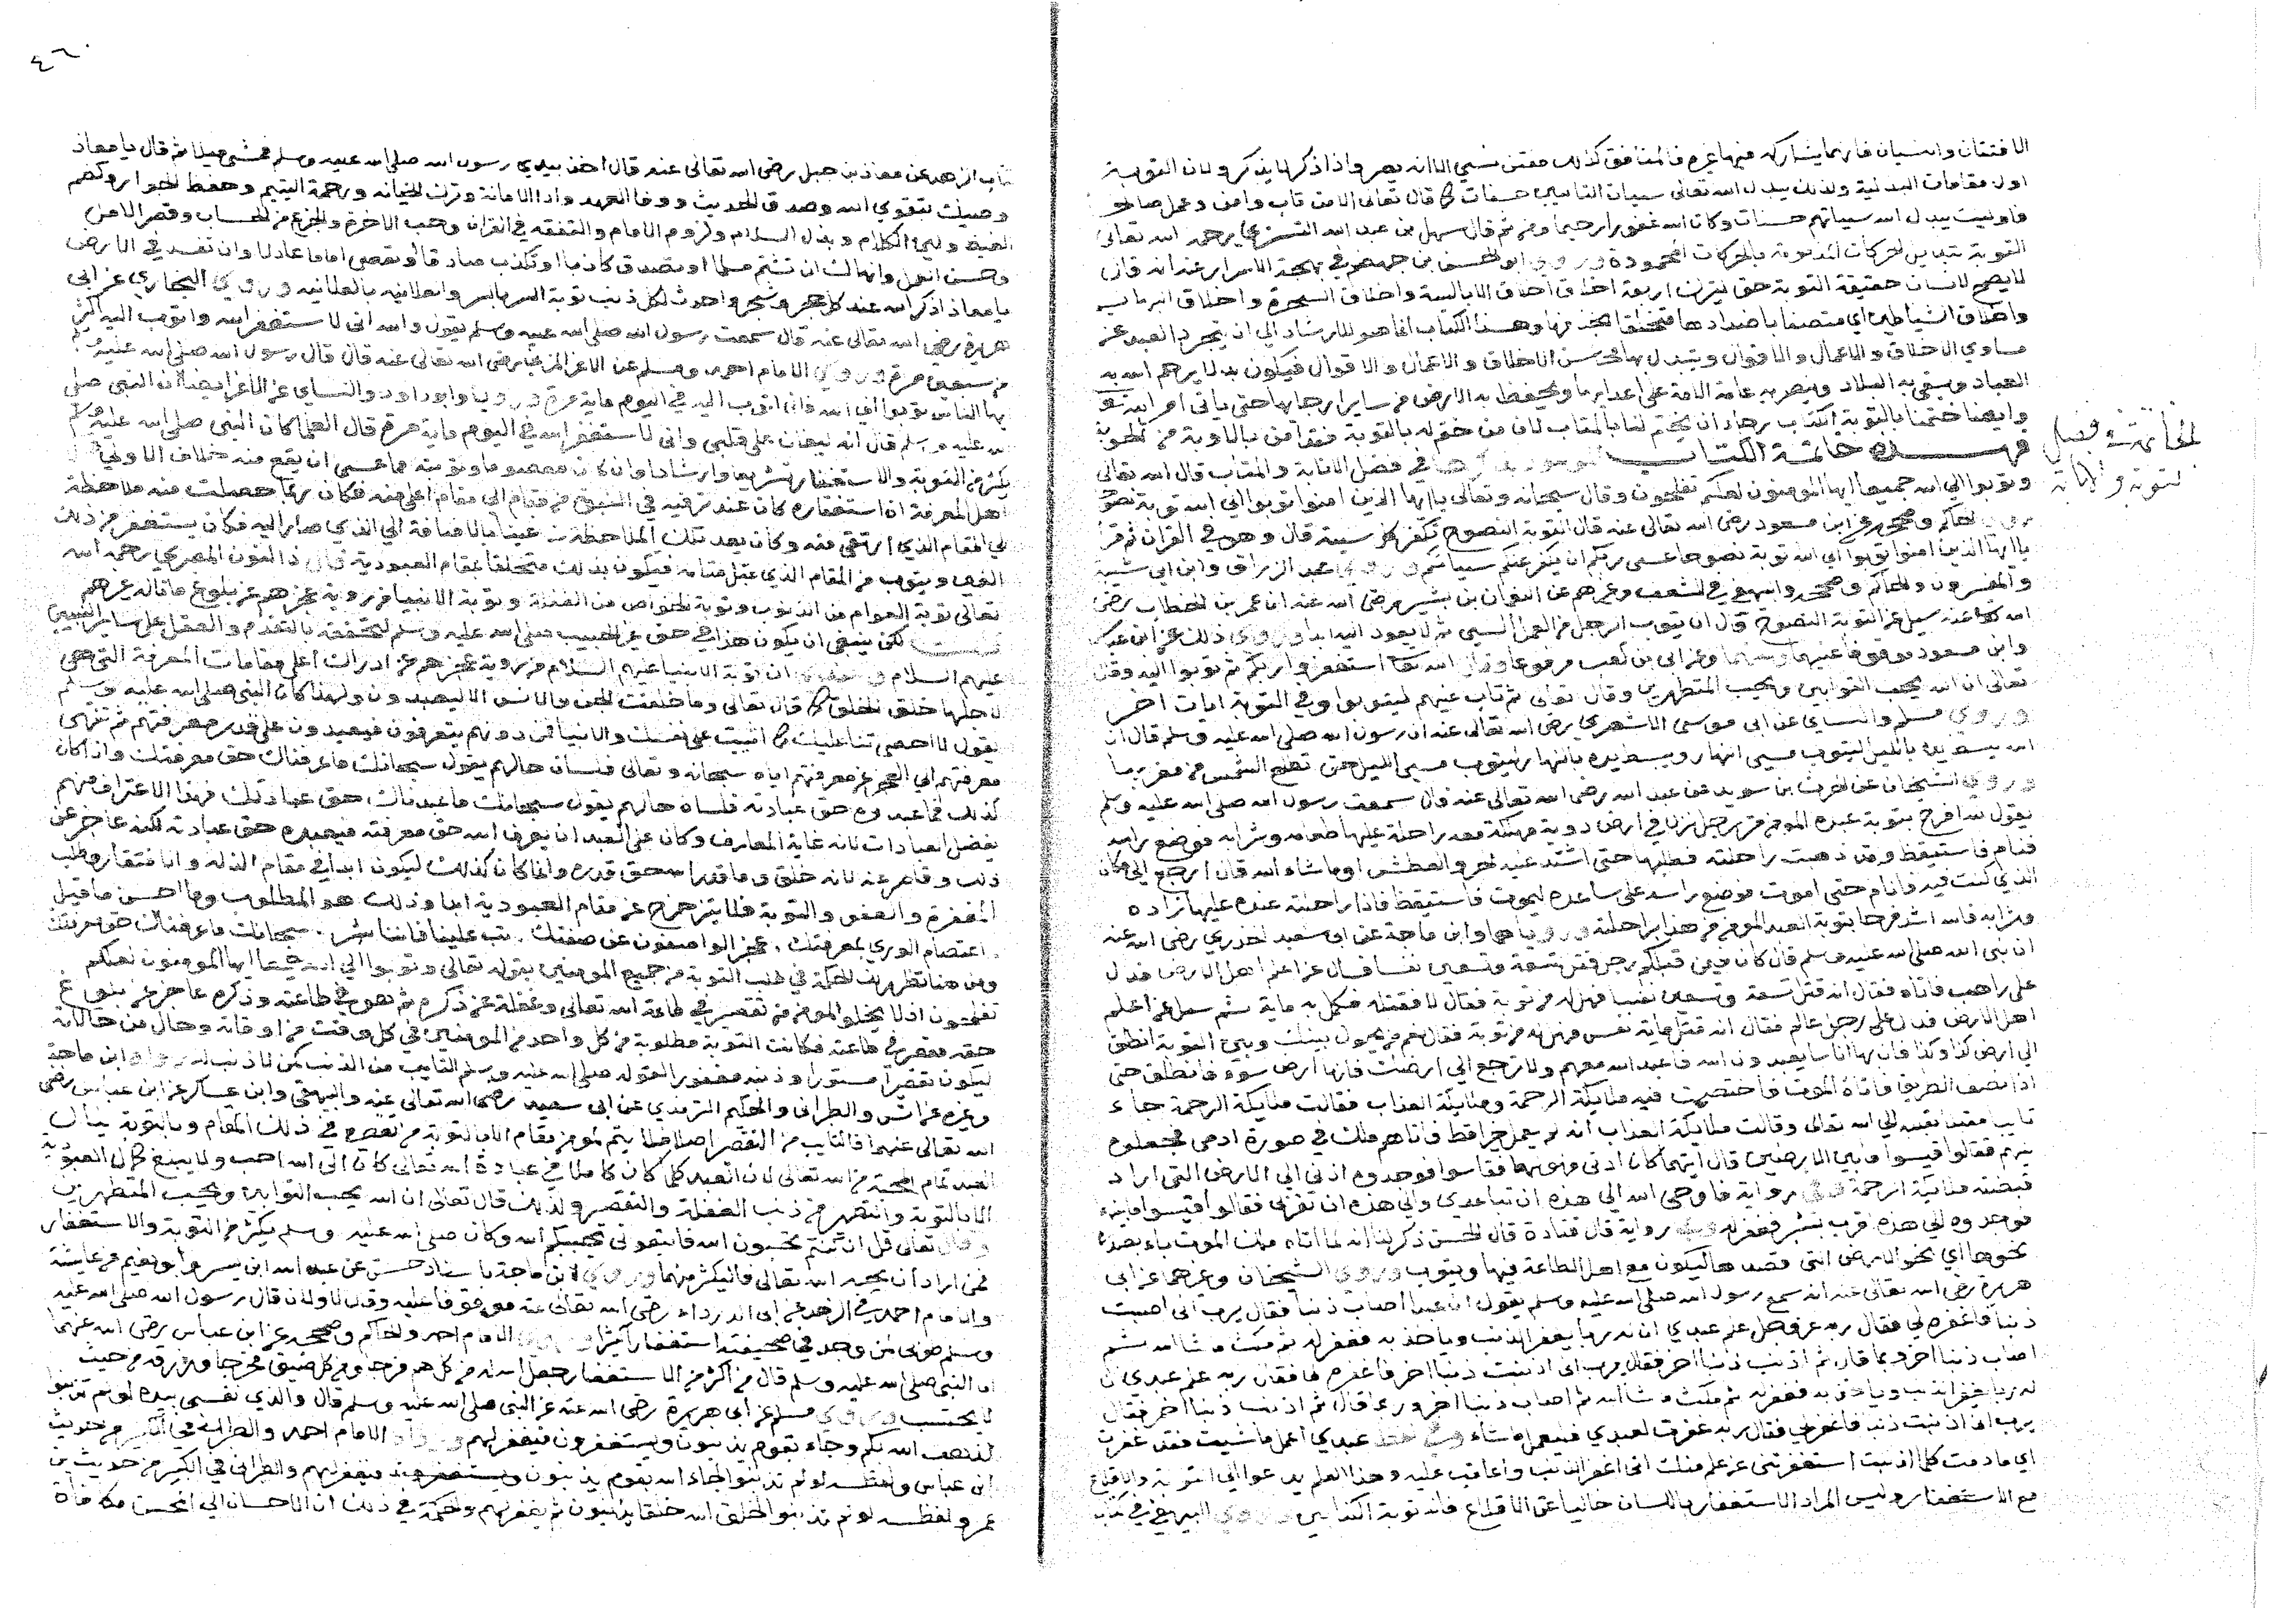 الافتتان والنسيان فانهما يشاركه فيهما غيره فالمنافق كذلك مفتن نسي الا انه يصر واذا ذكر لا يذكر ولان التوبة
اول مقامات البدلية ولذلك يبدل الله تعالى سيئات التائبين حسنات كما قال تعالى الا من تاب وامن وعمل صالحا
فاوليك يبدل الله سياتهم حسنات وكان الله غفورا رحيما ومن ثم قال سهل بن عبد الله التستري رحمه الله تعالى
التوبة تبديل الحركات المذمومة بالحركات المحمودة وروى ابو الحسن بن جهضم في بهجة الاسرار عنه انه قال
لا يصح لانسان حقيقة التوبة حتى يترك اربعة اخلاق اخلاق الابالسة واخلاق السحرة واخلاق
واخلاق الشياطين اي متصفا باضدادها وهذا الكتاب انما هو للارشاد الى ان يتجرد العبد عن
مساوي الاخلاق والاعمال والاقوال ويتبدل بها محاسن الاخلاق والاعمال والاقوال فيكون بدلا يرحم الله به
العباد ويسقي به البلاد وينصر به عامة الامة على اعدايها ويحفظ به الارض من ساير ارجايها حتى ياتي امر الله
وايضا ختمنا بالتوبة الكتاب رجاء ان يختم لنا بالمتاب لان من ختم له بالتوبة فقد امن
فهذه خاتمة الكتاب في فضل الانابة والمتاب قال الله تعالى
الخاتمة في فضل
التوبة والانابة
وتوبوا الى الله جميعا ايها المومنون لعلكم تفلحون وقال سبحانه وتعالى يا ايها الذين امنوا توبوا الى الله توبة نصوحا
الحاكم وصححه عن ابن مسعود رضي الله تعالى عنه قال التوبة النصوح تكفر كل سيئة قال وهو في القران ثم قرأ
يا ايها الذين امنوا توبوا الى الله توبة نصوحا عسى ربكم ان يكفر عنكم سياتكم وروى عبد الرزاق وابن ابي شيبة
والحاكم وصححه والبيهقي في الشعب وغيرهم عن النعمان بن بشير رضي الله عنه ان عمر بن الخطاب رضي
الله تعالى عنه سيل عن التوبة النصوح قال ان يتوب الرجل من العمل السيئ ثم لا يعود اليه ابدا وروى ذلك عن ابن عباس
وابن مسعود موقوفا عليهما وعن ابي بن كعب مرفوعا وقال الله تعالى استغفروا ربكم ثم توبوا اليه وقال
تعالى ان الله يحب التوابين ويحب المتطهرين وقال تعالى ثم تاب عليهم ليتوبوا وفي التوبة ايات اخر
وروى مسلم والنساي عن ابي موسى الاشعري رضي الله تعالى عنه ان رسول الله صلى الله عليه وسلم قال ان
الله يبسط يده بالليل ليتوب مسي النهار ويبسط يده بالنهار ليتوب مسي الليل حتى تطلع الشمس من مغربها
وروى الشيخان عن الحرث بن سويد عن عبد الله رضي الله تعالى عنه قال سمعت رسول الله صلى الله عليه وسلم
يقول لله افرح بتوبة عبده المومن من رجل نزل في ارض دوية مهلكة معه راحلة عليها طعامه وشرابه فوضع راسه
فنام فاستيقظ وقد ذهبت راحلته فطلبها حتى اشتد عليه الحر والعطش او ما شاء الله قال ارجع الى مكاني
الذي كنت فيه فانام حتى اموت فوضع راسه على ساعده ليموت فاستيقظ فاذا راحلته عنده عليها زاده
وشرابه فالله اشد فرحا بتوبة العبد المومن من هذا براحلته ورويا هما وابن ماجة عن ابي سعيد الخدري رضي الله عنه
ان نبي الله صلى الله عليه وسلم قال كان فيمن قبلكم رجل قتل تسعة وتسعين نفسا فسال عن اعلم اهل الارض فدل
على راهب فاتاه فقال انه قتل تسعة وتسعين نفسا فهل له من توبة فقال لا فقتله فكمل به ماية ثم سال عن اعلم
اهل الارض فدل على رجل عالم فقال انه قتل ماية نفس فهل له من توبة فقال نعم من يحول بينك وبين التوبة انطلق
الى ارض كذا وكذا فان بها اناسا يعبدون الله فاعبد الله معهم ولا ترجع الى ارضك فانها ارض سوء فانطلق حتى
اذا نصف الطريق فاتاه الموت فاختصمت فيه ملائكة الرحمة وملائكة العذاب فقالت ملائكة الرحمة جاء
تايبا مقبلا بقلبه الى الله تعالى وقالت ملائكة العذاب انه لم يعمل خيرا قط فاتاهم ملك في صورة ادمي فجعلوه
بينهم فقال قيسوا ما بين الارضين قال ايتهما كان ادنى فهو لها فقاسوا فوجدوه ادنى الى الارض التي اراد
فقبضته ملائكة الرحمة وفي رواية فاوحى الله الى هذه ان تباعدي والى هذه ان تقربي فقال اقيسوا ما بينهما
فوجدوه الى هذه اقرب بشبر فغفر له وفي رواية قال قتادة قال الحسن ذكر لنا انه لما اتاه ملك الموت ناء بصدره
نحوها اي نحو الارض التي قصدها ليكون مع اهل الطاعة فيها ويتوب وروى الشيخان وغيرهما عن ابي
هريرة رضي الله تعالى عنه انه سمع رسول الله صلى الله عليه وسلم يقول ان عبدا اصاب ذنبا فقال يرب اني اصبت
ذنبا فاغفره لي فقال ربه عز وجل علم عبدي ان له ربا يغفر الذنب وياخذ به فغفر له ثم مكث ما شا الله ثم
اصاب ذنبا اخر وربما قال ثم اذنب ذنبا اخر فقال يرب اني اذنبت ذنبا اخر فاغفره لي فقال ربه علم عبدي ان
له ربا يغفر الذنب وياخذ به فغفر له ثم مكث ما شا الله ثم اصاب ذنبا اخر وربما قال ثم اذنب ذنبا اخر فقال
يرب اني اذنبت ذنبا فاغفر لي فقال ربه غفرت لعبدي فليعمل ما شاء وفي لفظ عبدي اعمل ما شيت فقد غفرت
اي ما دمت كلما اذنبت استغفرتني عن علم منك اني اغفر الذنب واعاقب عليه وهذا العلم يدعو الى التوبة والاقلاع
مع الاستغفار وليس المراد الاستغفار باللسان خاليا عن الاقلاع فانه توبة الكذابين وروى البيهقي في كتاب
٤٦٠
كتاب الزهد عن معاذ بن جبل رضي الله تعالى عنه قال اخذ بيدي رسول الله صلى الله عليه وسلم فمشى ميلا ثم قال يا معاذ
وصيك بتقوى الله وصدق الحديث ووفا العهد واداء الامانة وترك الخيانة ورحمة اليتيم وحفظ الجوار وكظم
الغيظ ولين الكلام وبذل السلام ولزوم الامام والتفقه في القران وحب الاخرة والجزع من الحساب وقصر الامل
وحسن العمل وانهاك ان تشتم مسلما او تصدق كاذبا او تكذب صادقا او تعصي اماما عادلا وان تفسد في الارض
يا معاذ اذكر الله عند كل حجر وشجر واحدث لكل ذنب توبة السر بالسر والعلانية بالعلانية وروى البخاري عن ابي
هريرة رضي الله تعالى عنه قال سمعت رسول الله صلى الله عليه وسلم يقول والله اني لاستغفر الله واتوب اليه اكثر
من سبعين مرة وروى الامام احمد ومسلم عن الاغر المزني رضي الله تعالى عنه قال قال رسول الله صلى الله عليه وسلم
ايها الناس توبوا الى الله فاني اتوب اليه في اليوم ماية مرة ورويا وابو داود والنساي عن الاغر ايضا ان النبي صلى
الله عليه وسلم قال انه ليغان على قلبي واني لاستغفر الله في اليوم ماية مرة قال العلما كان النبي صلى الله عليه وسلم
يكثر من التوبة والاستغفار تشريعا وارشادا وان كان معصوما وتوبته مما عسى ان يقع منه خلاف الاولى
اهل المعرفة ان استغفاره كان عند ترقيه في من مقام الى مقام اعلى منه فكان ربما حصلت منه ملاحظة
الى المقام الذي ارتقى منه وكان يعد تلك الملاحظة غينا بالاضافة الى الذي صار اليه فكان يستغفر من ذلك
الغين ويتوب من المقام الذي قبل مقامه فيكون بذلك متحققا بمقام العبودية قال ذا النون المصري رحمه الله
تعالى توبة العوام من الذنوب وتوبة الخواص من الغفلة وتوبة الانبيا من روية عجزهم عن بلوغ ما ناله غيرهم
لكن ينبغي ان يكون هذا في حق غير الحبيب صلى الله عليه وسلم لتحققه بالتقدم والفضل على ساير النبيين
عليهم السلام ان توبة الانبيا عليهم السلام من روية عجزهم عن ادراك اعلى مقامات المعرفة التي هي
لاجلها خلق الخلق كما قال تعالى وما خلقت الجن والانس الا ليعبدون ولهذا كان النبي صلى الله عليه وسلم
يقول لا احصي ثنا عليك كما اثنيت على نفسك والانبيا فمن دونهم يتعرفون فيعبدون على قدر معرفتهم ثم تنتهي
معرفتهم الى العجز عن معرفتهم اياه سبحانه وتعالى فلسان حالهم يقول سبحانك ما عرفناك حق معرفتك واذا كان
كذلك فما عبدوه حق عبادته فلسان حالهم يقول سبحانك ما عبدناك حق عبادتك فهذا الاعتراف منهم
افضل العبادات لانه غاية المعارف وكان على العبد ان يعرف الله حق معرفته فيعبده حق عبادته لكنه عاجز عن
ذلك وقاصر عنه لانه خلق وما قدر الله حق قدره وانما كان كذلك ليكون ابدا في مقام الذلة والافتقار وطلب
المغفرة والعفو والتوبة فلا يتزحزح عن مقام العبودية ابدا وذلك هو المطلوب وما احسن ما قيل
اعتصام الورى بمعرفتك . عجز الواصفون عن صفتك . تب علينا فاننا بشر . سبحانك ما عرفناك حق معرفتك
ومن هنا تظهر لك الحكمة في طلب التوبة من جميع المومنين بقوله تعالى وتوبوا الى الله جميعا ايها المومنون لعلكم
تفلحون اذ لا يخلو المومن من تقصير في طاعة الله تعالى وغفلة عن ذكره ثم هو في طاعته وذكره عاجز عن بلوغ
حقه مقصر في طاعته فكانت التوبة مطلوبة من كل واحد من المومنين في كل وقت من اوقاته وحال من حالاته
ليكون تقصيره مستورا وذنبه مغفورا لقوله صلى الله عليه وسلم التايب من الذنب كمن لا ذنب له رواه ابن ماجة
وغيره عن انس والطبراني والحكيم الترمذي عن ابي سعيد رضي الله تعالى عنه والبيهقي وابن عساكر عن ابن عباس رضي
الله تعالى عنهما فالتايب من التقصير اصلا فلا يتم لمومن مقام الا بالتوبة من تقصيره في ذلك المقام وبالتوبة ينال
العبد تمام المحبة من الله تعالى لان العبد كلما كان كاملا في عبادة الله تعالى كان الى الله احب ولا يبلغ كمال العبودية
الا بالتوبة والتطهر من ذنب الغفلة والتقصير ولذلك قال تعالى ان الله يحب التوابين ويحب المتطهرين
وقال تعالى قل ان كنتم تحبون الله فاتبعوني يحببكم الله وكان صلى الله عليه وسلم يكثر من التوبة والاستغفار
فمن اراد ان يحبه الله تعالى فليكثر منهما وروى ابن ماجة باسناد حسن عن عبد الله ابن بسر وابو نعيم عن عايشة
والامام احمد في الزهد عن ابي الدرداء رضي الله تعالى عنه موقوفا عليه وقال الاولان قال رسول الله صلى الله عليه
وسلم طوبى لمن وجد في صحيفته استغفارا كثيرا الامام احمد والحاكم وصححه عن ابن عباس رضي الله عنهما
ان النبي صلى الله عليه وسلم قال من اكثر من الاستغفار جعل الله له من كل هم فرجا ومن كل ضيق مخرجا ورزقه من حيث
لا يحتسب وروى مسلم عن ابي هريرة رضي الله عنه عن النبي صلى الله عليه وسلم قال والذي نفسي بيده لو لم تذنبوا
لذهب الله بكم وجاء بقوم يذنبون ويستغفرون فيغفر لهم الامام احمد والطبراني في الكبير من حديث
ابن عباس ولفظه لو لم تذنبوا لجاء الله بقوم يذنبون فيغفر لهم والطبراني في الكبير من حديث بن
عمرو لفظه لو لم تذنبوا لخلق الله خلقا يذنبون ثم يغفر لهم والحكمة في ذلك ان الاحسان الى المحسن مكافاة